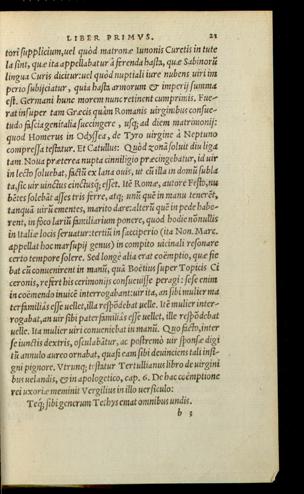 LIBER PRIMVS. 21
tori supplicium, uel quòd matronæ Iunonis Curetis in tute
la sint, quæ ita appellabatur à ferenda hasta, quæ Sabinorũ
lingua Curis dicitur: uel quòd nuptiali iure nubens uiri im
perio subijciatur, quia hasta armorum & imperij summa
est. Germani hunc morem nunc retinent cumprimis. Fue-
rat insuper tam Græcis quàm Romanis uirginibus consue-
tudo fascia genitalia succingere, usq; ad diem matrimonij:
quod Homerus in Odyssea, de Tyro uirgine à Neptuno
compressa testatur. Et Catullus: Quòd zonã soluit diu liga
tam. Noua præterea nupta cinniligio præcingebatur, id uir
in lecto soluebat, factũ ex lana ouis, ut cũ illa in domũ subla
ta, sic uir uinctus cinctusq́; esset. Itẽ Romæ, autore Festo, nu
bẽtes solebãt asses tris ferre, atq; unũ quẽ in manu tenerẽt,
tanquã uirũ ementes, marito dare: alterũ quẽ in pede habe-
rent, in foco lariũ familiarium ponere, quod hodie nõ nullis
in Italiæ locis seruatur: tertiũ in sacciperio (ita Non. Marc.
appellat hoc marsupij genus) in compito uicinali resonare
certo tempore solere. Sed longè alia erat coẽptio, quæ fie
bat cũ conuenirent in manũ, quã Boëtius super Topicis Ci
ceronis, refert his cerimonijs consueuisse peragi: sese enim
in coëmendo inuicẽ interrogabant: uir ita, an sibi mulier ma
ter familiâs esse uellet, illa respõdebat uelle. Itẽ mulier inter-
rogabat, an uir sibi pater familiâs esse uellet, ille respõdebat
uelle. Ita mulier uiri conueniebat in manũ. Quo facto, inter
se iunctis dextris, osculabãtur, ac postremò uir sponsæ digi
tũ annulo aureo ornabat, quasi eam sibi deuinciens tali insi-
gni pignore. Vtrunq; testatur Tertullianus libro de uirgini
bus uelandis, & in apologetico, cap. 6. De hac coëmptione
rei uxoriæ meminit Vergilius in illo uersiculo:
Teq́; sibi generum Tethys emat omnibus undis.
b 3